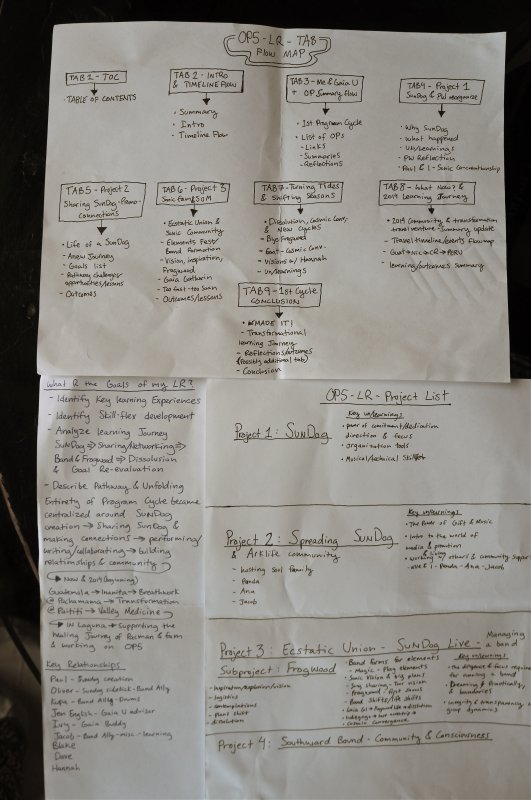 OP5-LR-TAB
FLOW MAP
TAB 1 - TOC
TABLE OF CONTENTS
TAB 2 - INTRO
& TIMELINE FLOW
- Summary
- Intro
- Timeline Flow
TAB 3 - Me & Gaia U
+ OP Summary Flow
- 1st Program Cycle
- List of OPs
- Links
- Summaries
- Reflections
TAB 4 - Project 1
SunDog & PW
- Why SunDog
- What happened
- Un/learnings
- PW Reflection
- Paul & I - Sonic Co-creationship
TAB 5 - Project 2
Sharing SunDog - Promo -
connections
- Life of a SunDog
- A new Journey
- Goals list
- Pathway challenges/
opportunities/lessons
- Outcomes
TAB 6 - Project 3
Sonic Fam & SOM
- Ecstatic Union &
Sonic Community
- Elements Fest/
Band Formation
- Vision, inspiration,
Frogwood
- Gaia Gathering
- Too fast - too soon
- Outcomes/lessons
TAB 7 - Turning Tides
& Shifting Seasons
- Dissolution, Cosmic Conv,
& New Cycles
- Bye Frogwood
- Goat - Cosmic Conv.
- Visions w/ Hannah
- Un/learnings
TAB 8 - What Now? &
2019 Learning Journey
- 2019 Community & transformation
travel venture - Summary, update
- Travel timeline/events Flowmap
- Guat → NIC → CR → PERU
- learning/outcomes Summary
TAB 9 - 1st Cycle
CONCLUSION
- MADE IT!
- Transformational
learning Journey
- Reflections/outcomes
(Possibly additional tab)
- Conclusion
What R the Goals of my LR?
- Identify Key learning Experiences
- Identify Skill-flex development
- Analyze learning Journey
SunDog ⇒ Sharing/Networking ⇒
Band & Frogwood ⇒ Dissolution
& Goal Re-evaluation
- Describe Pathway & Unfolding
Entirety of Program Cycle became
centralized around SunDog
creation → Sharing SunDog &
making connections → performing/
writing/collaborating → building
relationships & community
↳ Now & 2019 (beginning)
Guatemala → Inanita → Breathwork
@ Pachamama → Transformation
@ Paititi → Valley Medicine
↳ in Laguna → Supporting the
healing Journey of Ruman & fam
& working on OP5
Key Relationships
Paul - SunDog creation
Oliver - SunDog sidekick - Band Ally
Kupa - Band Ally - Drums
Jen English - Gaia U advisor
Ivry - Gaia Buddy
Jacob - Band Ally - misc - learning
Blake
Dave
Hannah
OP5-LR-Project List
Project 1: SunDog
Key un/learnings
- power of comitment/dedication
direction & focus
- organization tools
- Musical/technical Skillflex
Project 2: Spreading SunDog
& Arklife community
- hosting Soul Family
- Panda
- Ana
- Jacob
Key un/learnings
- The Power of Gift & Music
- Intro to the world of
media & promotion
- working w/ others & community support
- Panda - Ana - Jacob
Project 3: Ecstatic Union - SunDog Live - Managing
a band
Subproject: Frogwood
- inspiration/exploration/vision
- logistics
- contemplations
- Plant Shift
- dissolution
- Band forms for elements
- Magic - Play elements
- Sonic Vision & big plans
- Song sharing - Tour vision
- Frogwood - first shows
- Band Shifts/life skills
- Cosmic Convergence
Key un/learnings
- the diligence & focus required
for running a band
- Dreaming & Practicality,
& boundaries
- integrity & transparency in
group dynamics
Project 4: Southward Bound - Community & Consciousness